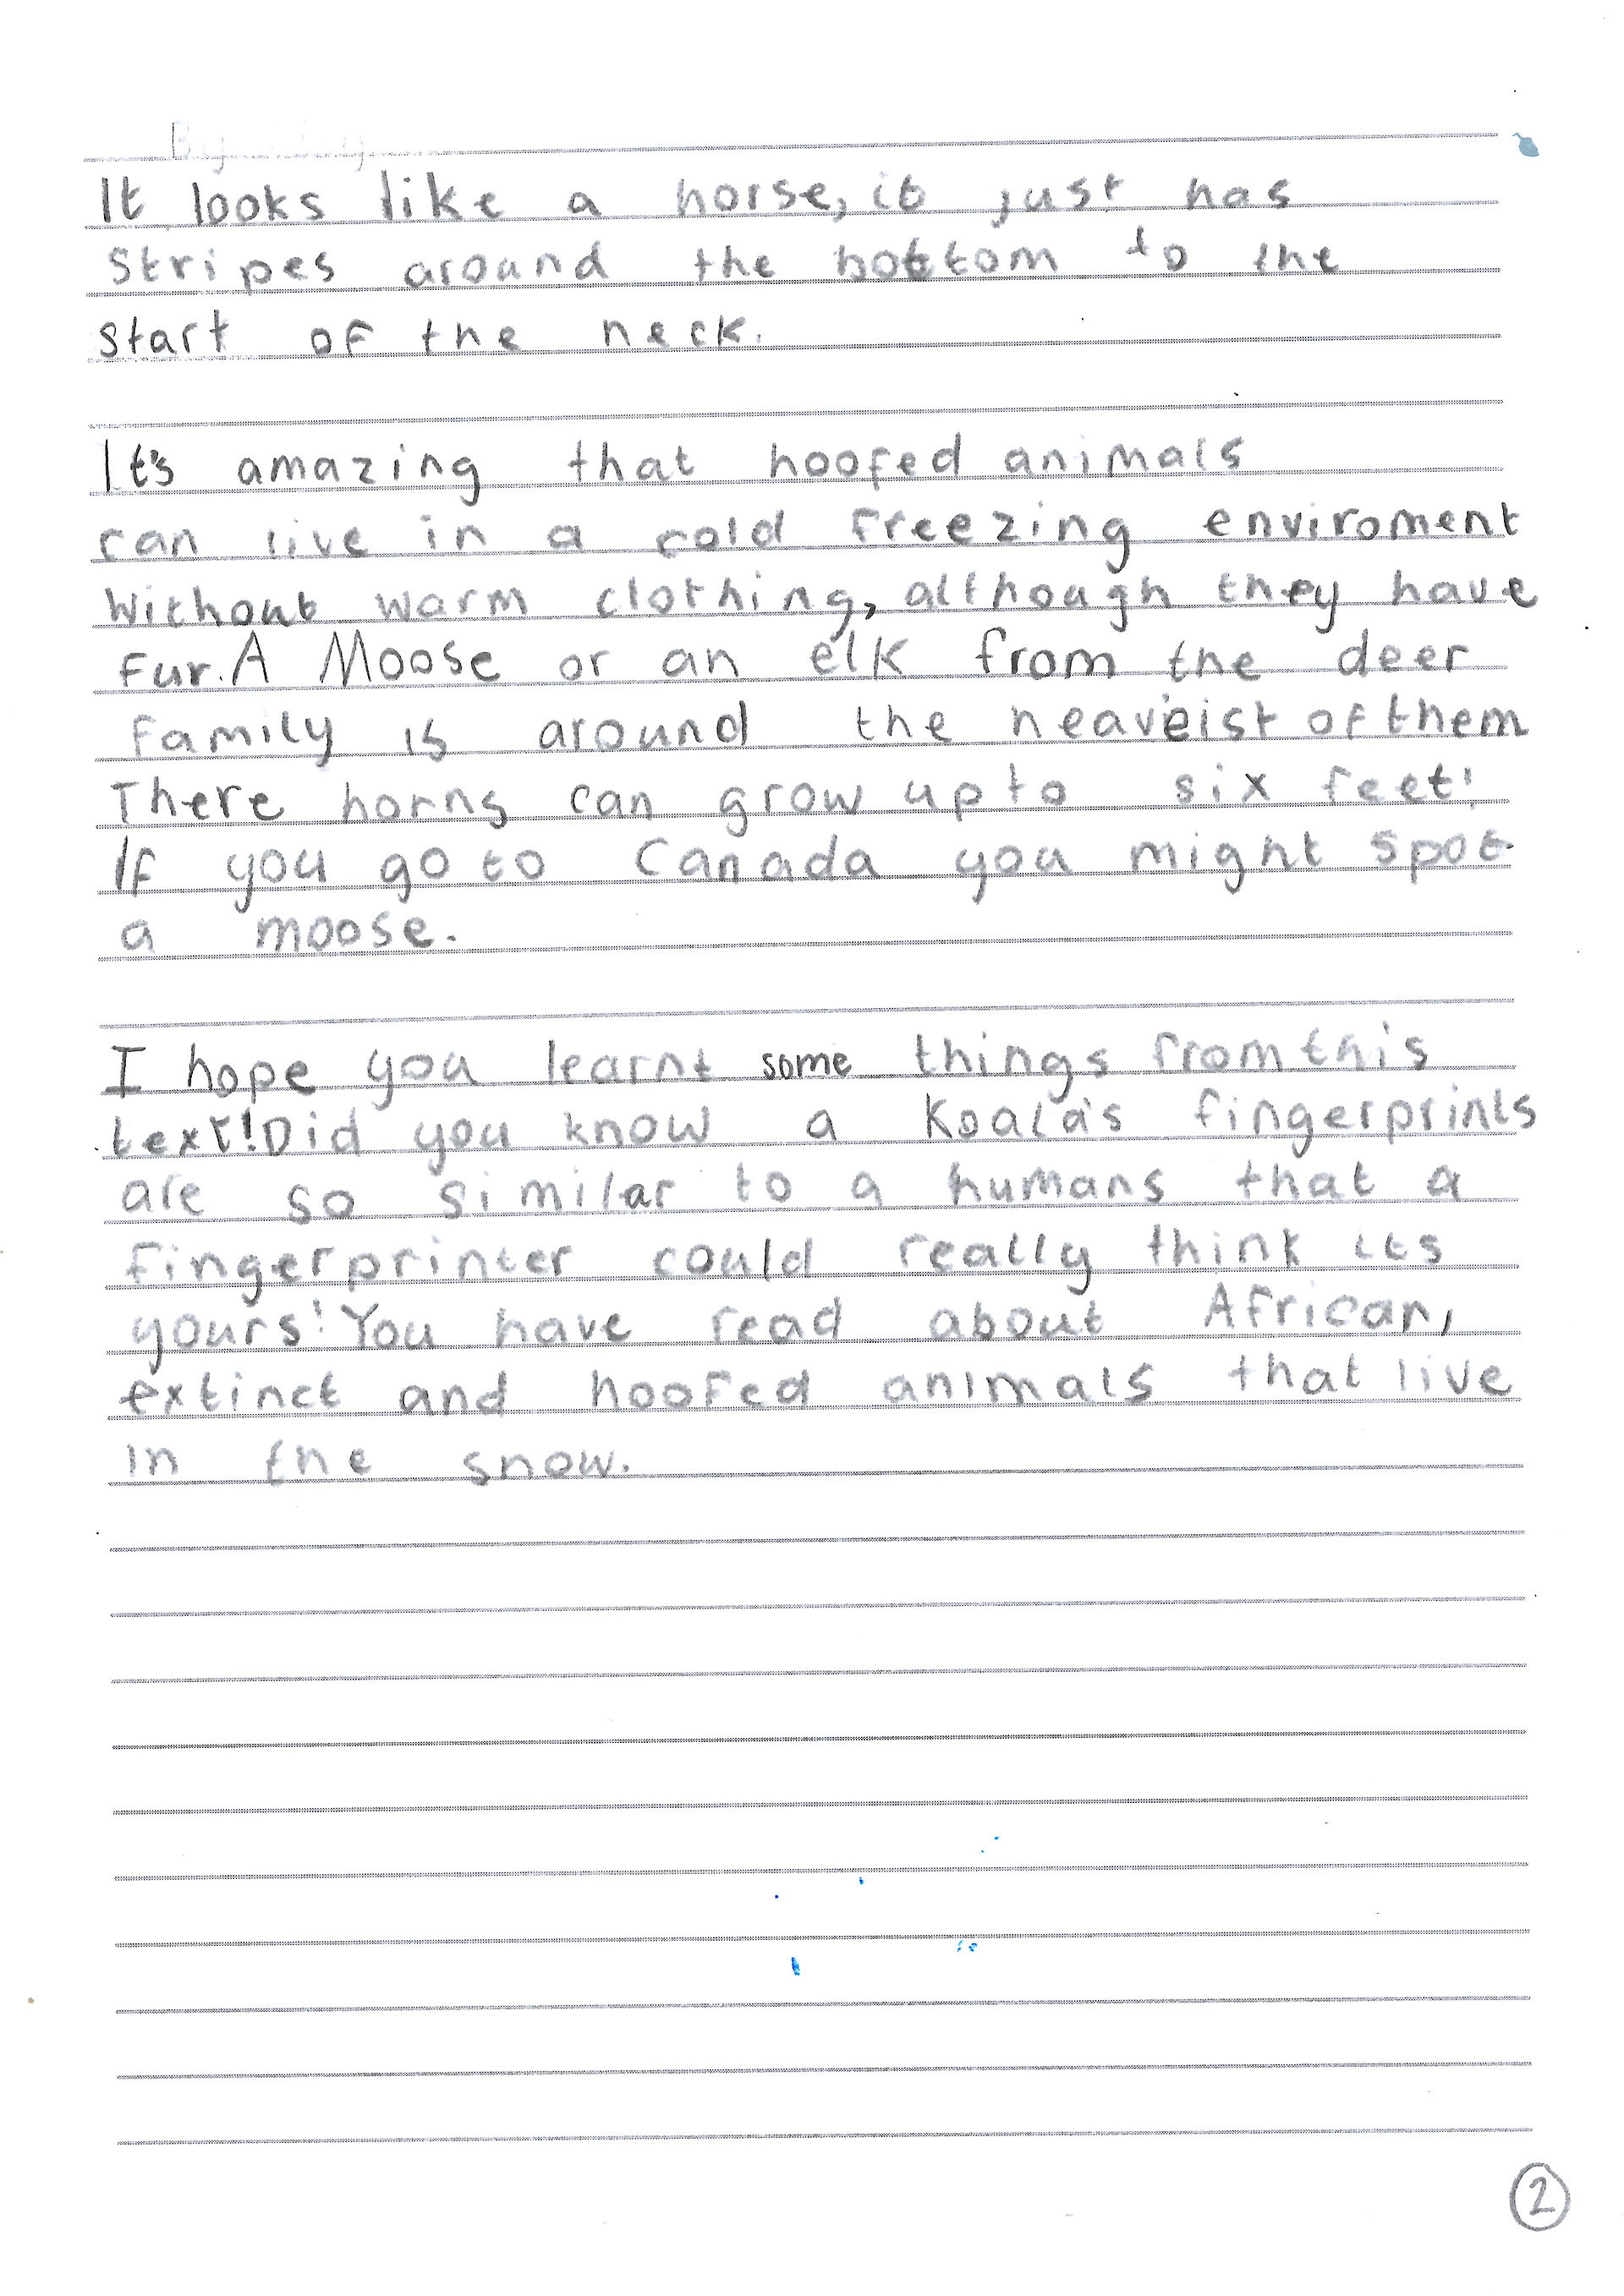 It looks like a horse, it just has
stripes around the bottom to the
start of the neck.
It's amazing that hoofed animals
can live in a cold freezing enviroment
without warm clothing, although they have
fur. A Moose or an elk from the deer
family is around the heaveist of them
There horns can grow up to six feet!
If you go to Canada you might spot
a moose.
I hope you learnt some things from this
text! Did you know a Koala's fingerprints
are so similar to a humans that a
fingerprinter could really think its
yours! You have read about African,
extinct and hoofed animals that live
in the snow.
2